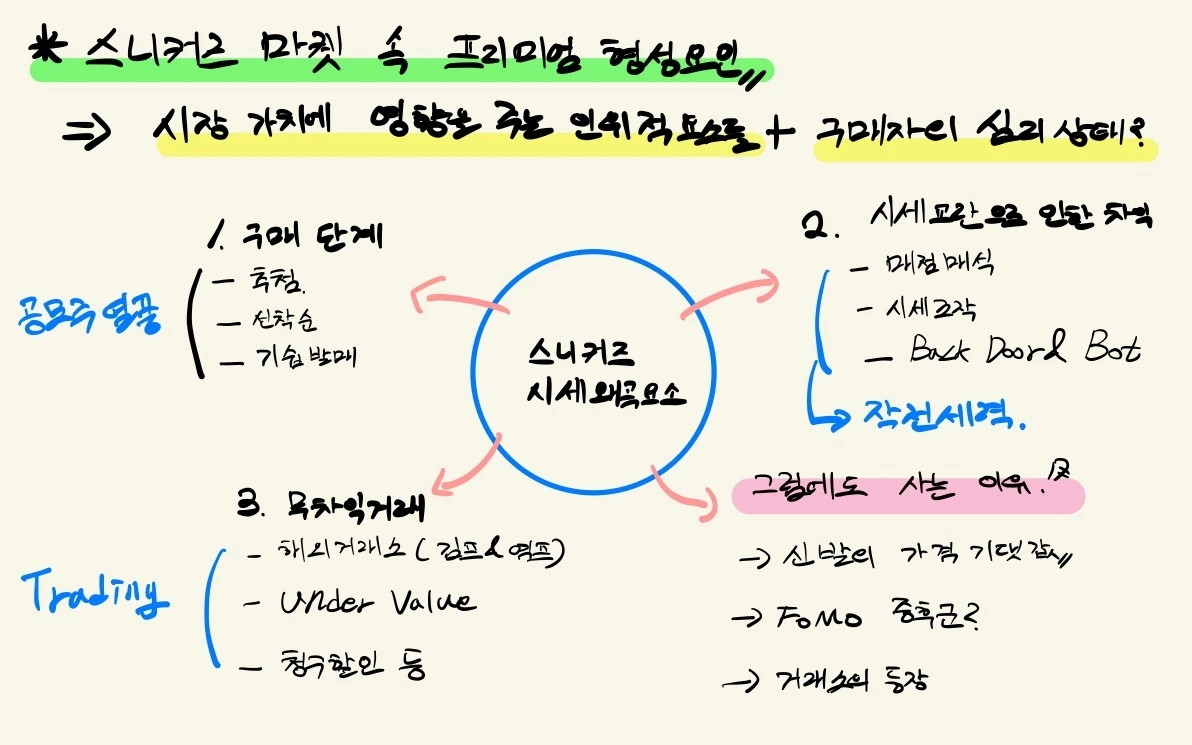 * 스니커즈 마켓 속 프리미엄 형성요인〃
⇒ 시장 가치에 영향을 주는 인위적 요소들 + 구매자의 심리상태?
1. 구매 단계
- 추첨.
- 선착순
- 기습발매
공모주 열풍
2. 시세교란으로 인한 차익
- 매점매석
- 시세조작
- Back Door & Bot
→ 작전세력.
스니커즈
시세왜곡요소
3. 무차익거래
- 해외거래소 (김프 & 역프)
- Under Value
- 청구할인 등
Trading
그럼에도 사는 이유.
→ 신발의 가격 기댓값〃
→ FoMo 증후군?
→ 거래소의 등장